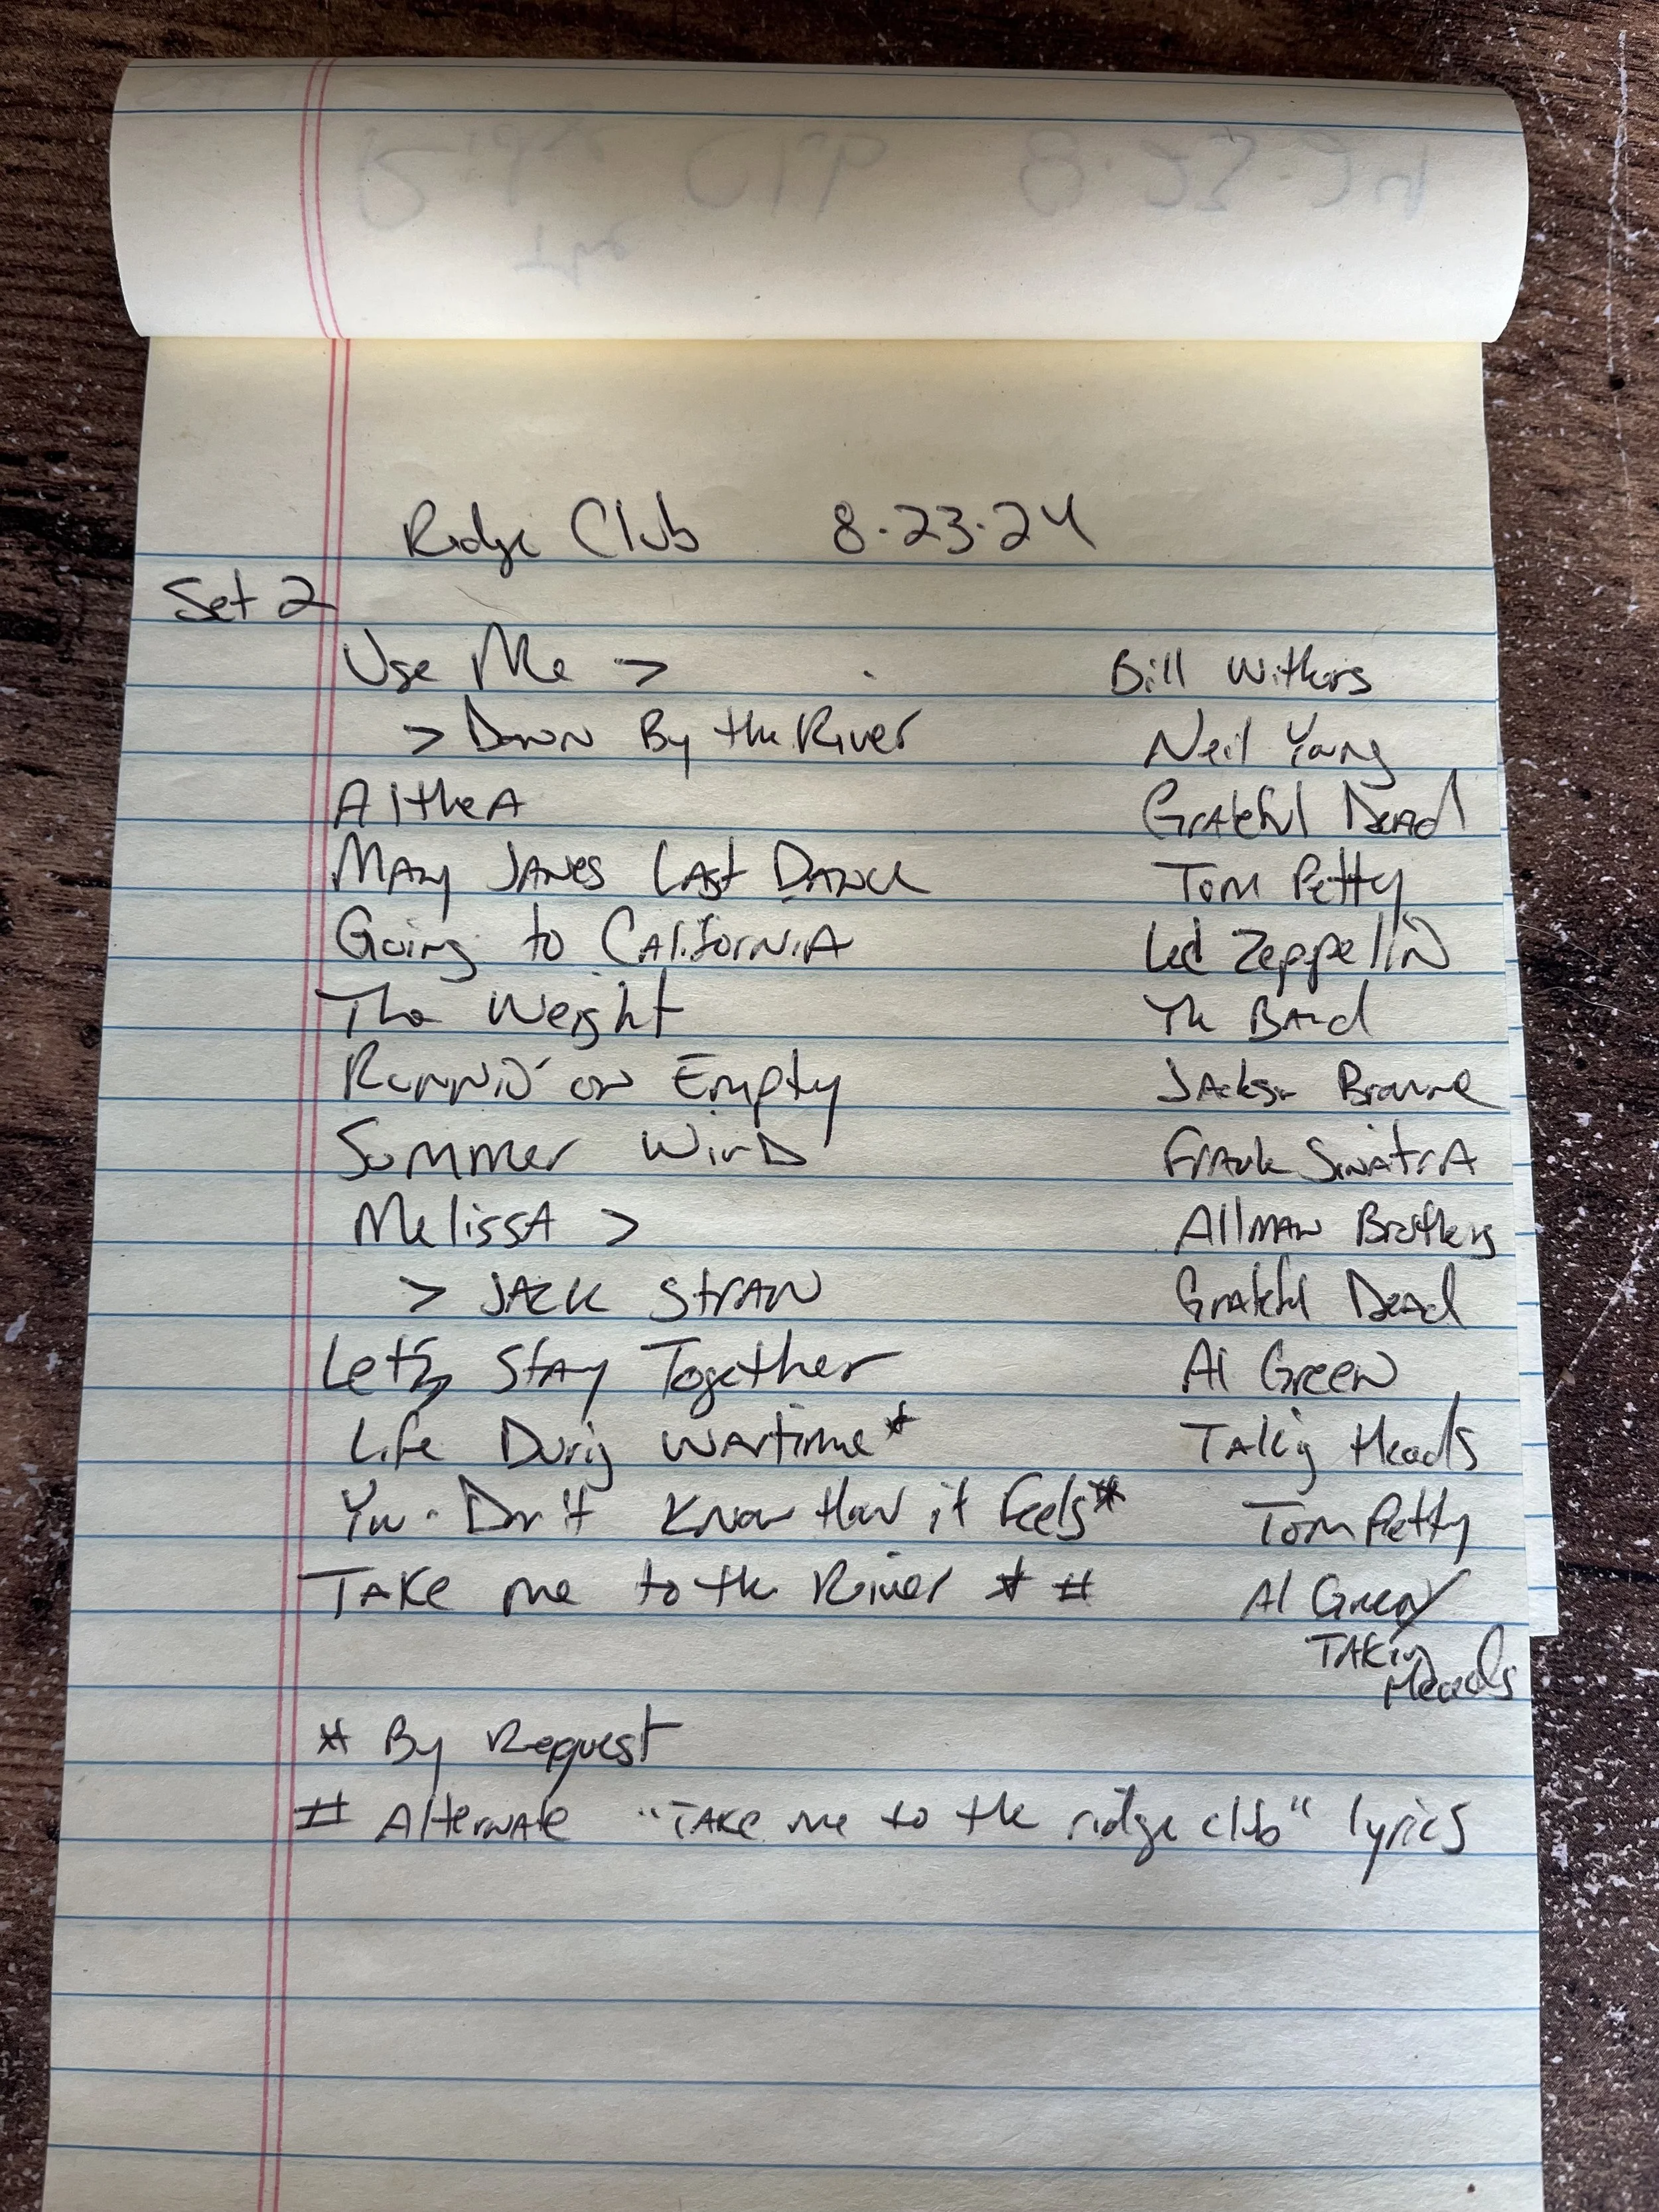 Ridge Club 8.23.24
Set 2
Use Me > Bill Withers
> Down By the River Neil Young
Althea Grateful Dead
Mary Janes Last Dance Tom Petty
Going to California Led Zeppelin
The Weight The Band
Runnin' on Empty Jackson Browne
Summer Wind Frank Sinatra
Melissa > Allman Brothers
> Jack Straw Grateful Dead
Let's Stay Together Al Green
Life During Wartime * Talking Heads
You Don't Know How it Feels * Tom Petty
Take me to the River * # Al Green/
Talking
Heads
* By Request
# Alternate "Take me to the ridge club" lyrics